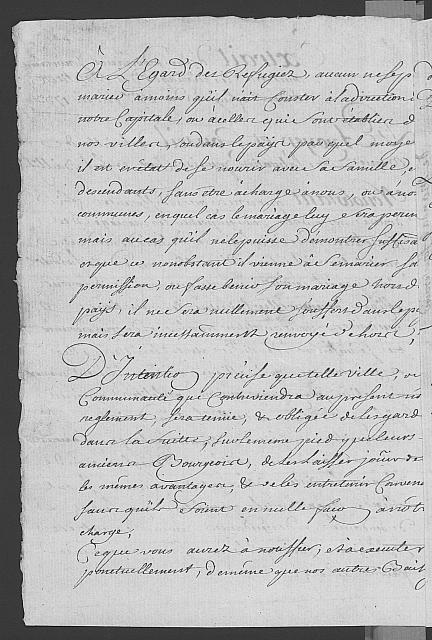 A L'Egard des Refugiez, aucun ne se p
marier à moins qu'il n'ait Conster à la direction
notre Capitale, ou à celles qui sont établies d
nos villes, ou dans le pays, par quel moye
il est en état de se nourir avec sa famille, e
descendants, sans etre à charge a nous, ou a no
communes, en quel cas le mariage luy sera perm
mais au cas qu'il ne le puisse démontrer suffisa
et que ce nonobstant il vienne à se marier sa
permission, ou fasse benir son mariage hors d
pays, il ne sera nullement souffert dans le pa
mais sera incessamment renvoyé d'hors;
D'Intentio précise que telle ville, o
Communauté que contreviendra au present
reglement sera tenüe, & obligée de les gard
dans la suitte, sur le meme pied que leurs
anciens Bourgeois, de les laisser joüir de
les mêmes avantages, & de les entretenir
sans qu'ils soient en nulle faço à notr
charge;
Ce que vous aurez à notiffier, et à executer
ponctuellement, de même que nos autres Baif